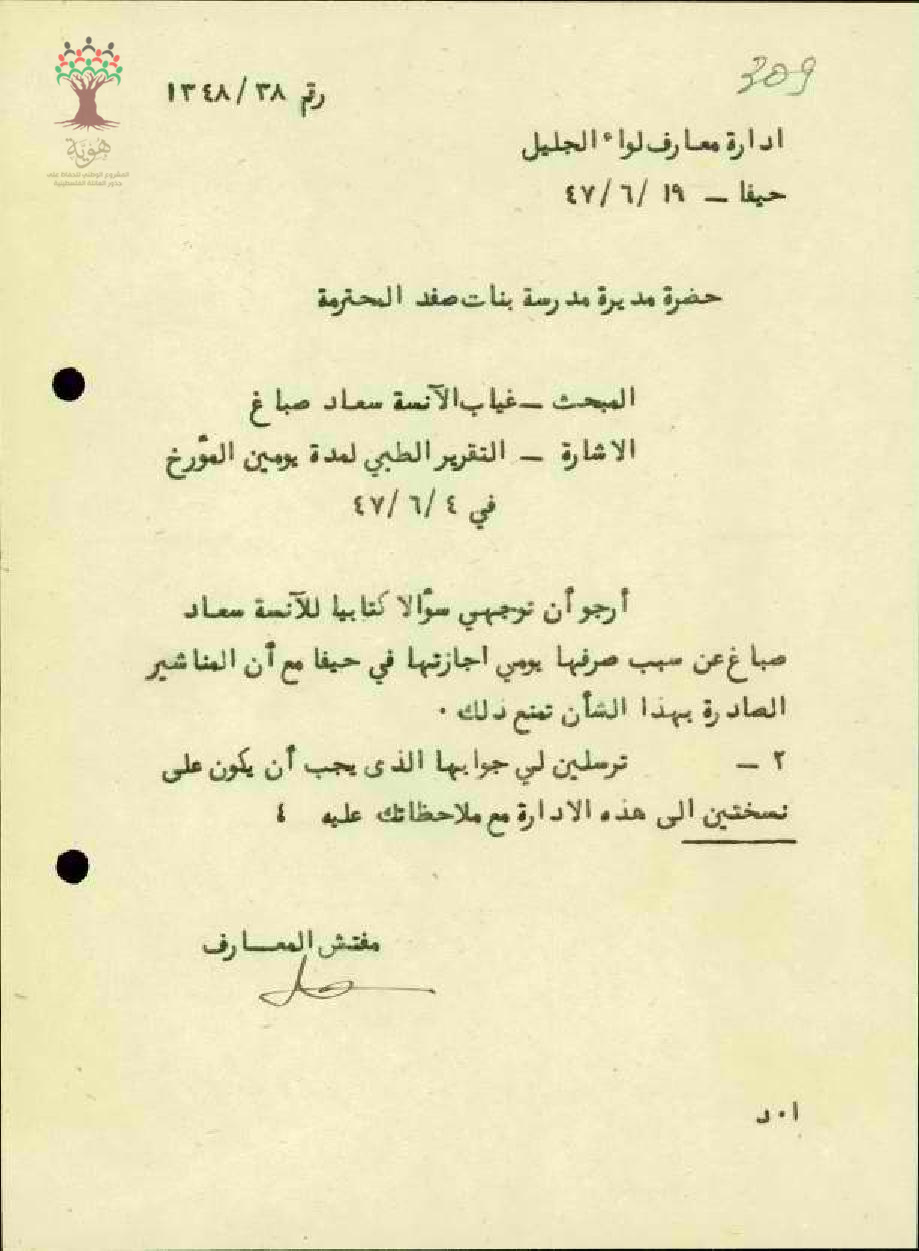 309
رقم ١٣٤٨/٣٨
هُوِيَّة
المشروع الوطني للحفاظ على
جذور العائلة الفلسطينية
ادارة معارف لواء الجليل
حيفا – ١٩ /٤٧/٦
حضرة مديرة مدرسة بنات صفد المحترمة
المبحث – غياب الآنسة سعاد صباغ
الاشارة – التقرير الطبي لمدة يومين المؤرخ
في ٤ /٤٧/٦
أرجو أن توجهي سؤالا كتابيا للآنسة سعاد
صباغ عن سبب صرفها يومي اجازتها في حيفا مع أن المناشير
الصادرة بهذا الشأن تمنع ذلك ٠
٢ – ترسلين لي جوابها الذى يجب أن يكون على
نسختين الى هذه الادارة مع ملاحظاتك عليه ٤
مفتش المعارف
ا٠د